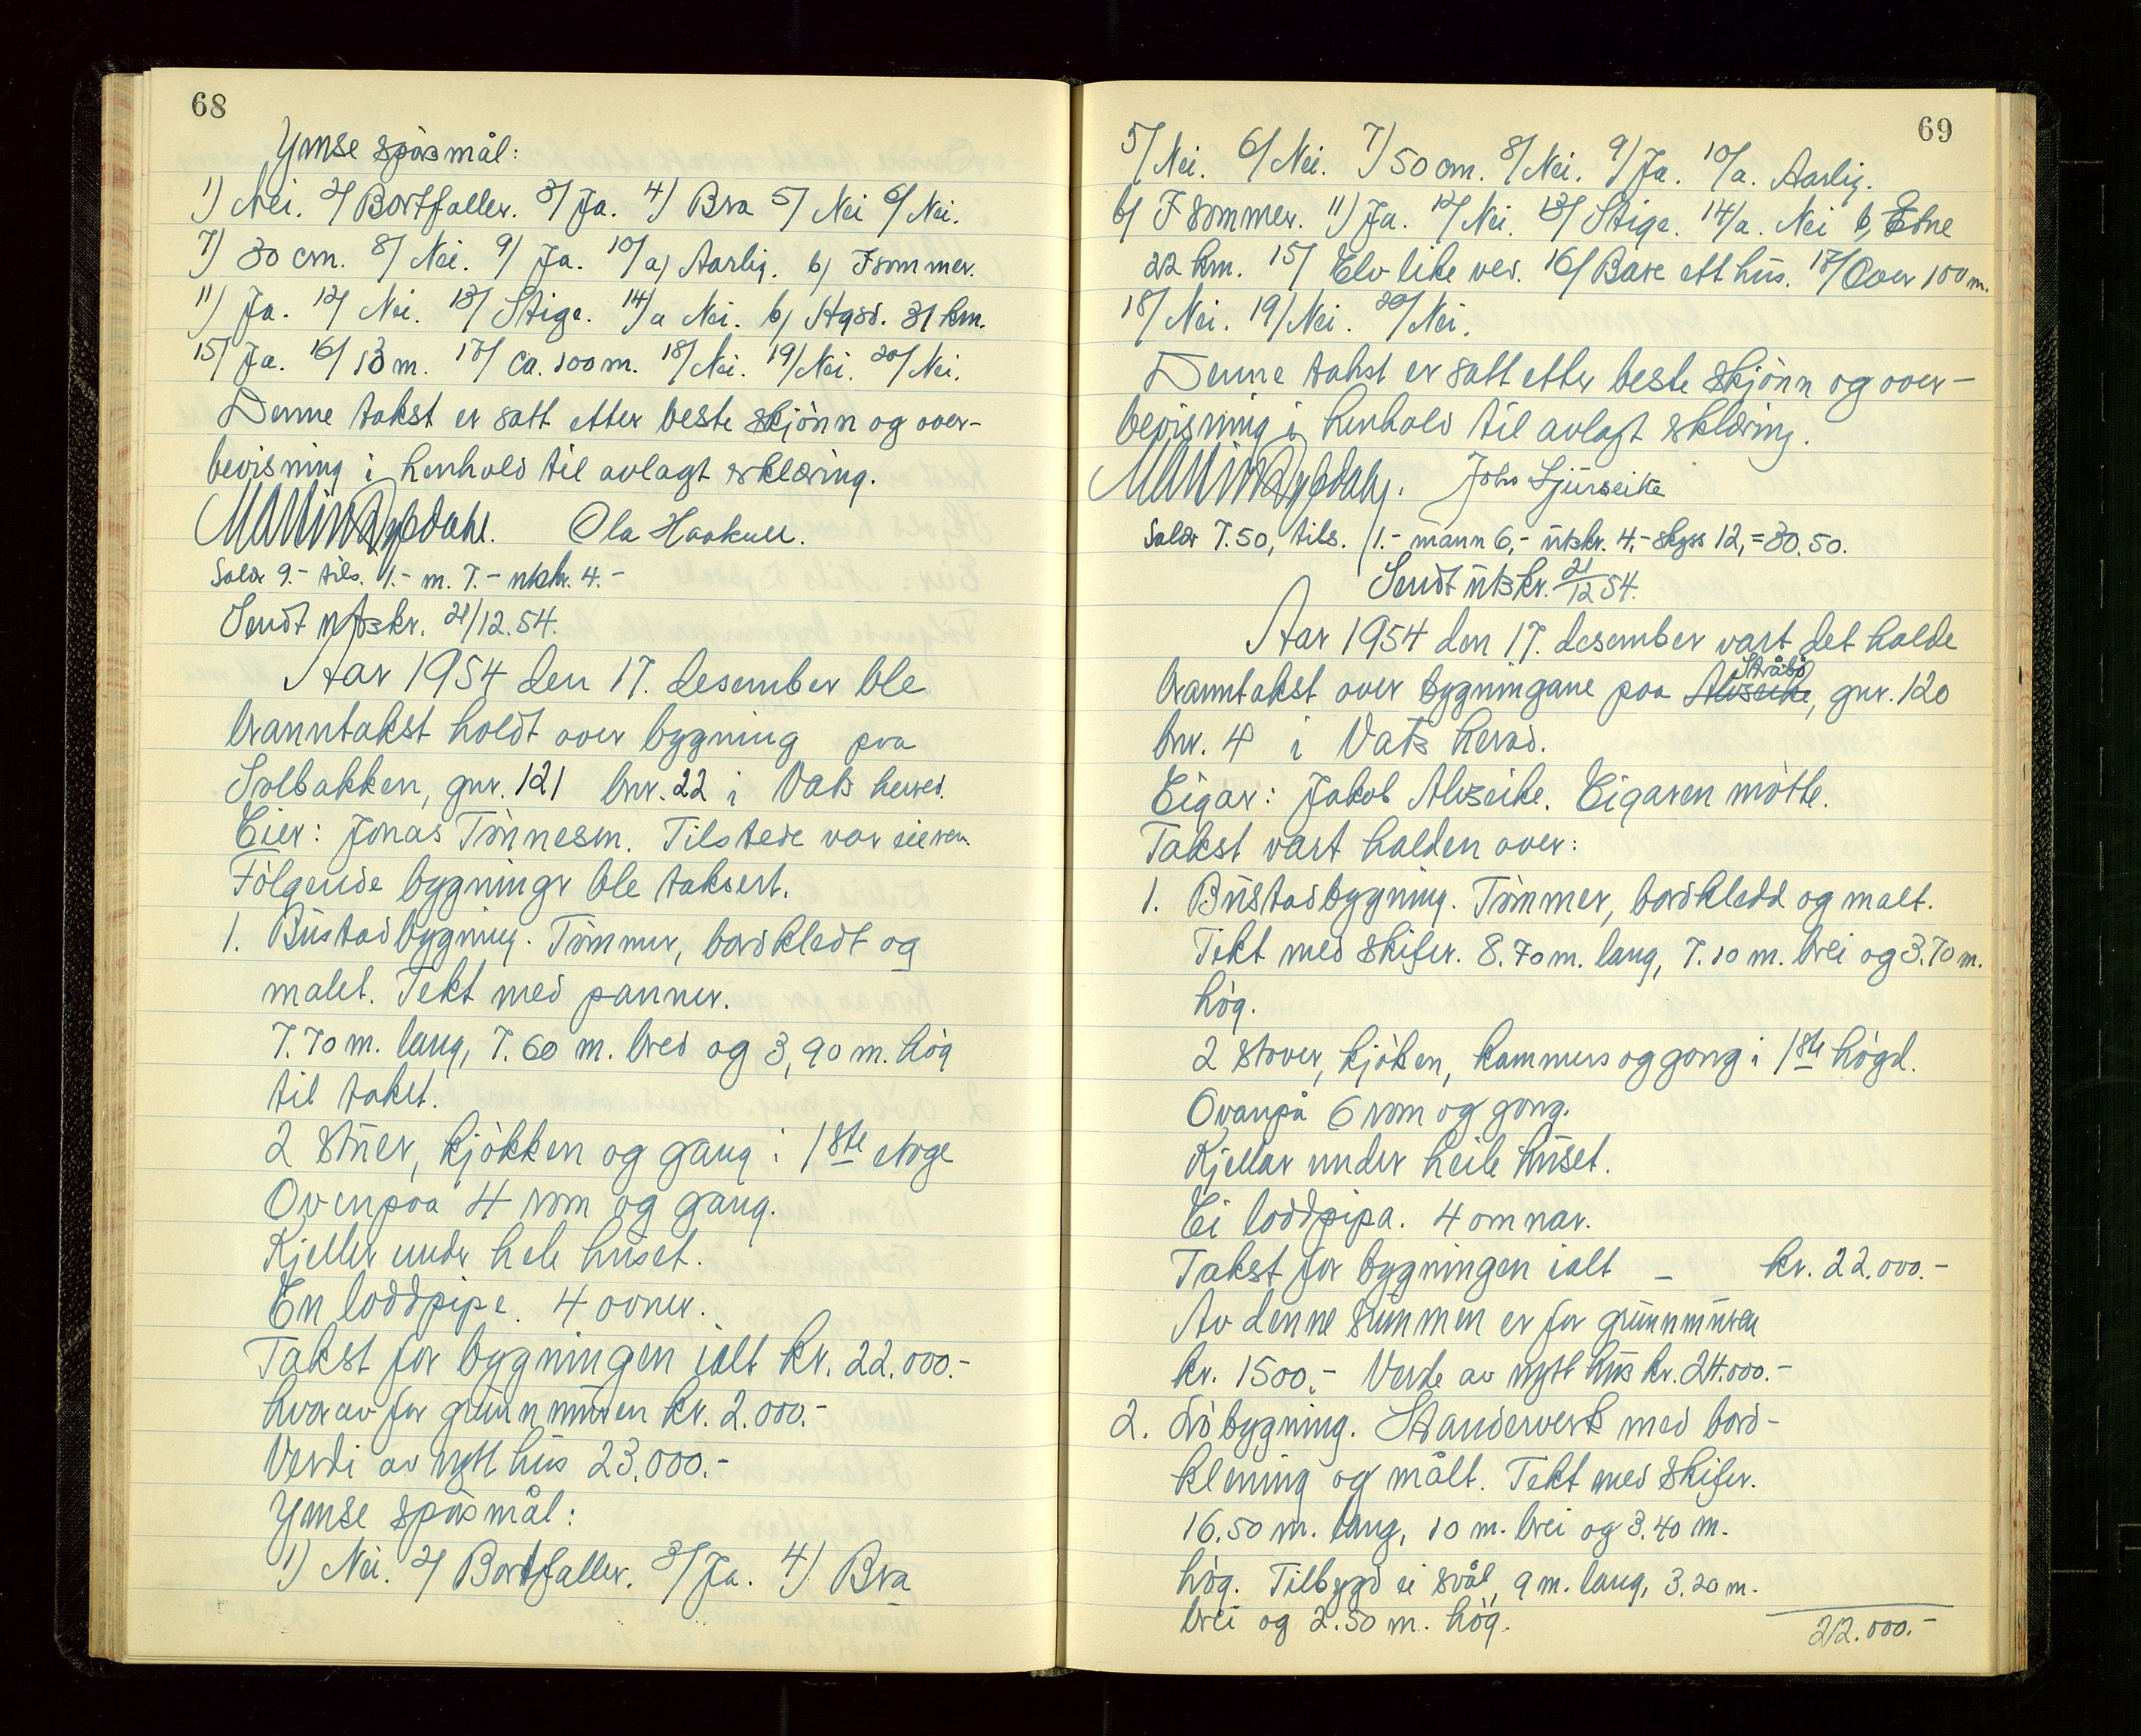 68
Ymse spòsmål:
1) Nei. 2/ Bortfaller. 3/ Ja. 4/ Bra 5/ Nei 6/ Nei.
7) 30 cm. 8/ Nei. 9/ Ja. 10/a) Aarlig. b) I sommer.
11) Ja. 12/ Nei. 13/ Stige. 14/a Nei. b) Hgsd. 31 km.
15/ Ja. 16/ 13 m. 17/ ca. 100 m. 18/ Nei. 19/ Nei. 20/ Nei.
Denne takst er satt etter beste skjònn og over-
bevisning i henhold til avlagt erklæring.
Martin Dybdahl. Ola Haakull.
Salær 9.- tils. 1.- m. 7.- utskr. 4.-
Sendt utskr. 21/12.54.
Aar 1954 den 17. desember ble
branntakst holdt over bygning paa
Solbakken, gnr. 121 bnr. 22 i Vats herred.
Eier: Jonas Tònnesen. Tilstede var eieren
Fòlgende bygninger ble taksert.
1. Bustadbygning. Tòmmer, bordkledt og
malet. Tekt med panner.
7.70 m. lang, 7.60 m. bred og 3,90 m. hòg
til taket.
2 stuer, kjòkken og gang i 1ste etage
Ovenpaa 4 rom og gang.
Kjeller under hele huset.
En loddpipe. 4 ovner.
Takst for bygningen ialt kr. 22.000.-
hvorav for grunnmuren kr. 2.000.-
Verdi av nytt hus 23.000.-
Ymse spòsmål:
1) Nei. 2/ Bortfaller. 3/ Ja. 4/ Bra
69
5/ Nei. 6/ Nei. 7) 50 cm. 8/ Nei. 9/ Ja. 10/a. Aarlig.
b/ I sommer. 11) Ja. 12/ Nei. 13/ Stige. 14/a. Nei b, Etne
22 km. 15/ Elv like ved. 16/ Bare ett hus. 17/ Over 100 m.
18/ Nei. 19/ Nei. 20/ Nei.
Denne takst er satt etter beste skjònn og over-
bevisning i henhold til avlagt erklæring.
Martin Dybdahl. Johs Sjurseike
Salær 7.50, tils. 1.- mann 6,- utskr. 4,- skyss 12,=30.50.
Sendt utskr. 21/12 54.
Aar 1954 den 17. desember vart det halde
Stråbò
branntakst over bygningane paa Alvseike, gnr. 120
bnr. 4 i Vats herad.
Eigar: Jakob Alvseike. Eigaren mòtte.
Takst vart halden over:
1. Bustadbygning. Tòmmer, bordkledd og malt.
Tekt med skifer. 8.70 m. lang, 7.10 m. brei og 3.70 m.
hòg.
2 stover, kjòken, kammers og gong i 1ste hògd.
Ovanpå 6 rom og gong.
Kjellar under heile huset.
Ei loddpipa. 4 omnar.
Takst for bygningen ialt – kr. 22.000.-
Av denne summen er for grunnmuren
kr. 1500.- Verde av nytt hus kr. 24.000.-
2. Lòbygning. Standerverk med bord-
klening og målt. Tekt med skifer.
16.50 m. lang, 10 m. brei og 3.40 m.
hòg. Tilbygd ei svål, 9 m. lang, 3.20 m.
brei og 2.50 m. hòg.
22.000.-